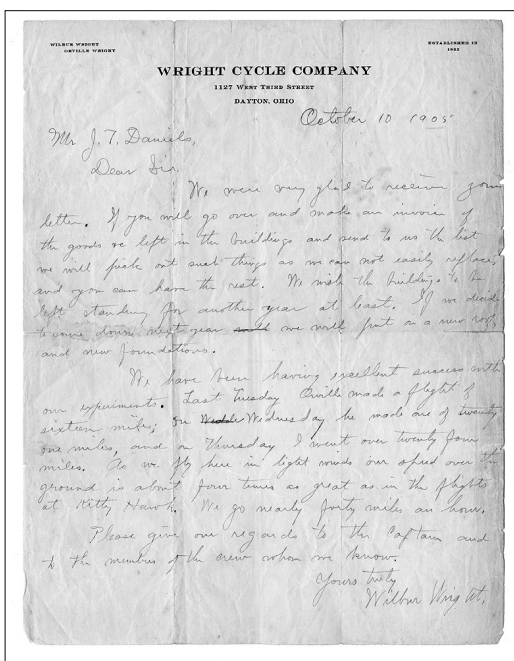 WILBUR WRIGHT
ORVILLE WRIGHT
ESTABLISHED IN
1892
WRIGHT CYCLE COMPANY
1127 WEST THIRD STREET
DAYTON, OHIO
October 10 1905
Mr J. T. Daniels,
Dear Sir.
We were very glad to receive your
letter. If you will go over and make an invoice of
the goods we left in the buildings and send to us the list
we will pick out such things as we can not easily replace,
and you can have the rest. We wish the buildings to be
left standing for another year at least. If we decide
to come down next year we will put on a new roof,
and new foundations.
We have been having excellent success with
our experiments. Last Tuesday Orville made a flight of
sixteen miles; on Wednesday he made one of twenty
one miles, and on Thursday I went over twenty four
miles. As we fly here in light winds our speed over the
ground is about four times as great as in the flights
at Kitty Hawk. We go nearly forty miles an hour.
Please give our regards to the Captain and
to the members of the crew whom we know.
Yours truly
Wilbur Wright.